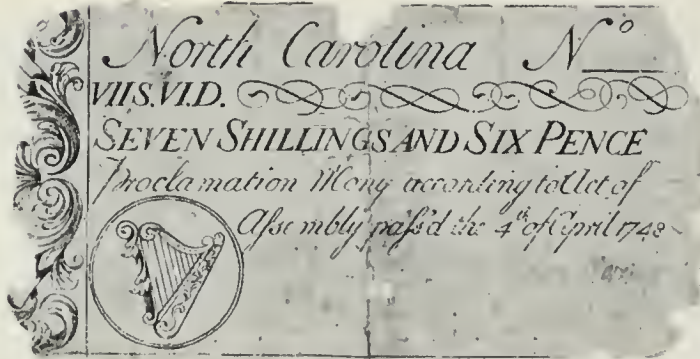 North Carolina No
VIIS.VI.D.
SEVEN SHILLINGS AND SIX PENCE
Proclamation Mony according to Act of
Assembly pass'd the 4th of April 1748